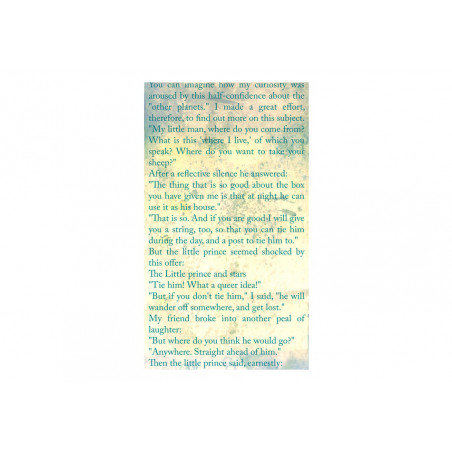 You can imagine how my curiosity was
aroused by this half-confidence about the
"other planets." I made a great effort,
therefore, to find out more on this subject.
"My little man, where do you come from?
What is this 'where I live,' of which you
speak? Where do you want to take your
sheep?"
After a reflective silence he answered:
"The thing that is so good about the box
you have given me is that at night he can
use it as his house."
"That is so. And if you are good I will give
you a string, too, so that you can tie him
during the day, and a post to tie him to."
But the little prince seemed shocked by
this offer:
The Little prince and stars
"Tie him! What a queer idea!"
"But if you don't tie him," I said, "he will
wander off somewhere, and get lost."
My friend broke into another peal of
laughter:
"But where do you think he would go?"
"Anywhere. Straight ahead of him."
Then the little prince said, earnestly: